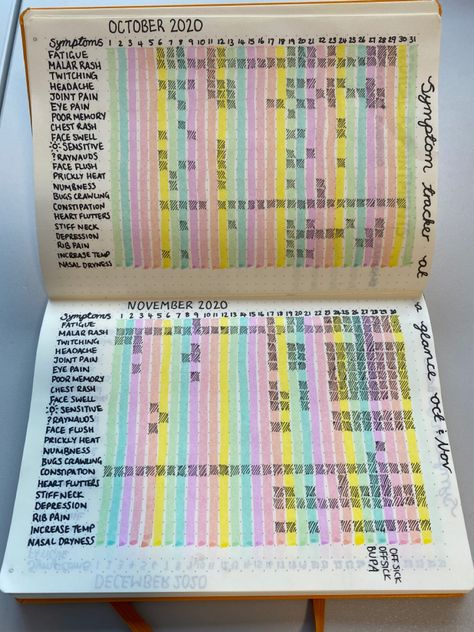 OCTOBER 2020
Symptoms 1 2 3 4 5 6 7 8 9 10 11 12 13 14 15 16 17 18 19 20 21 22 23 24 25 26 27 28 29 30 31
FATIGUE
MALAR RASH
TWITCHING
HEADACHE
JOINT PAIN
EYE PAIN
POOR MEMORY
CHEST RASH
FACE SWELL
SENSITIVE
? RAYNAUDS
FACE FLUSH
PRICKLY HEAT
NUMBNESS
BUGS CRAWLING
CONSTIPATION
HEART FLUTTERS
STIFF NECK
DEPRESSION
RIB PAIN
INCREASE TEMP
NASAL DRYNESS
Symptom tracker at
a glance oct & Nov
NOVEMBER 2020
Symptoms 1 2 3 4 5 6 7 8 9 10 11 12 13 14 15 16 17 18 19 20 21 22 23 24 25 26 27 28 29 30
FATIGUE
MALAR RASH
TWITCHING
HEADACHE
JOINT PAIN
EYE PAIN
POOR MEMORY
CHEST RASH
FACE SWELL
SENSITIVE
? RAYNAUDS
FACE FLUSH
PRICKLY HEAT
NUMBNESS
BUGS CRAWLING
CONSTIPATION
HEART FLUTTERS
STIFF NECK
DEPRESSION
RIB PAIN
INCREASE TEMP
NASAL DRYNESS
BUPA
OFFSICK
OFF SICK
Symptoms
DECEMBER 2020